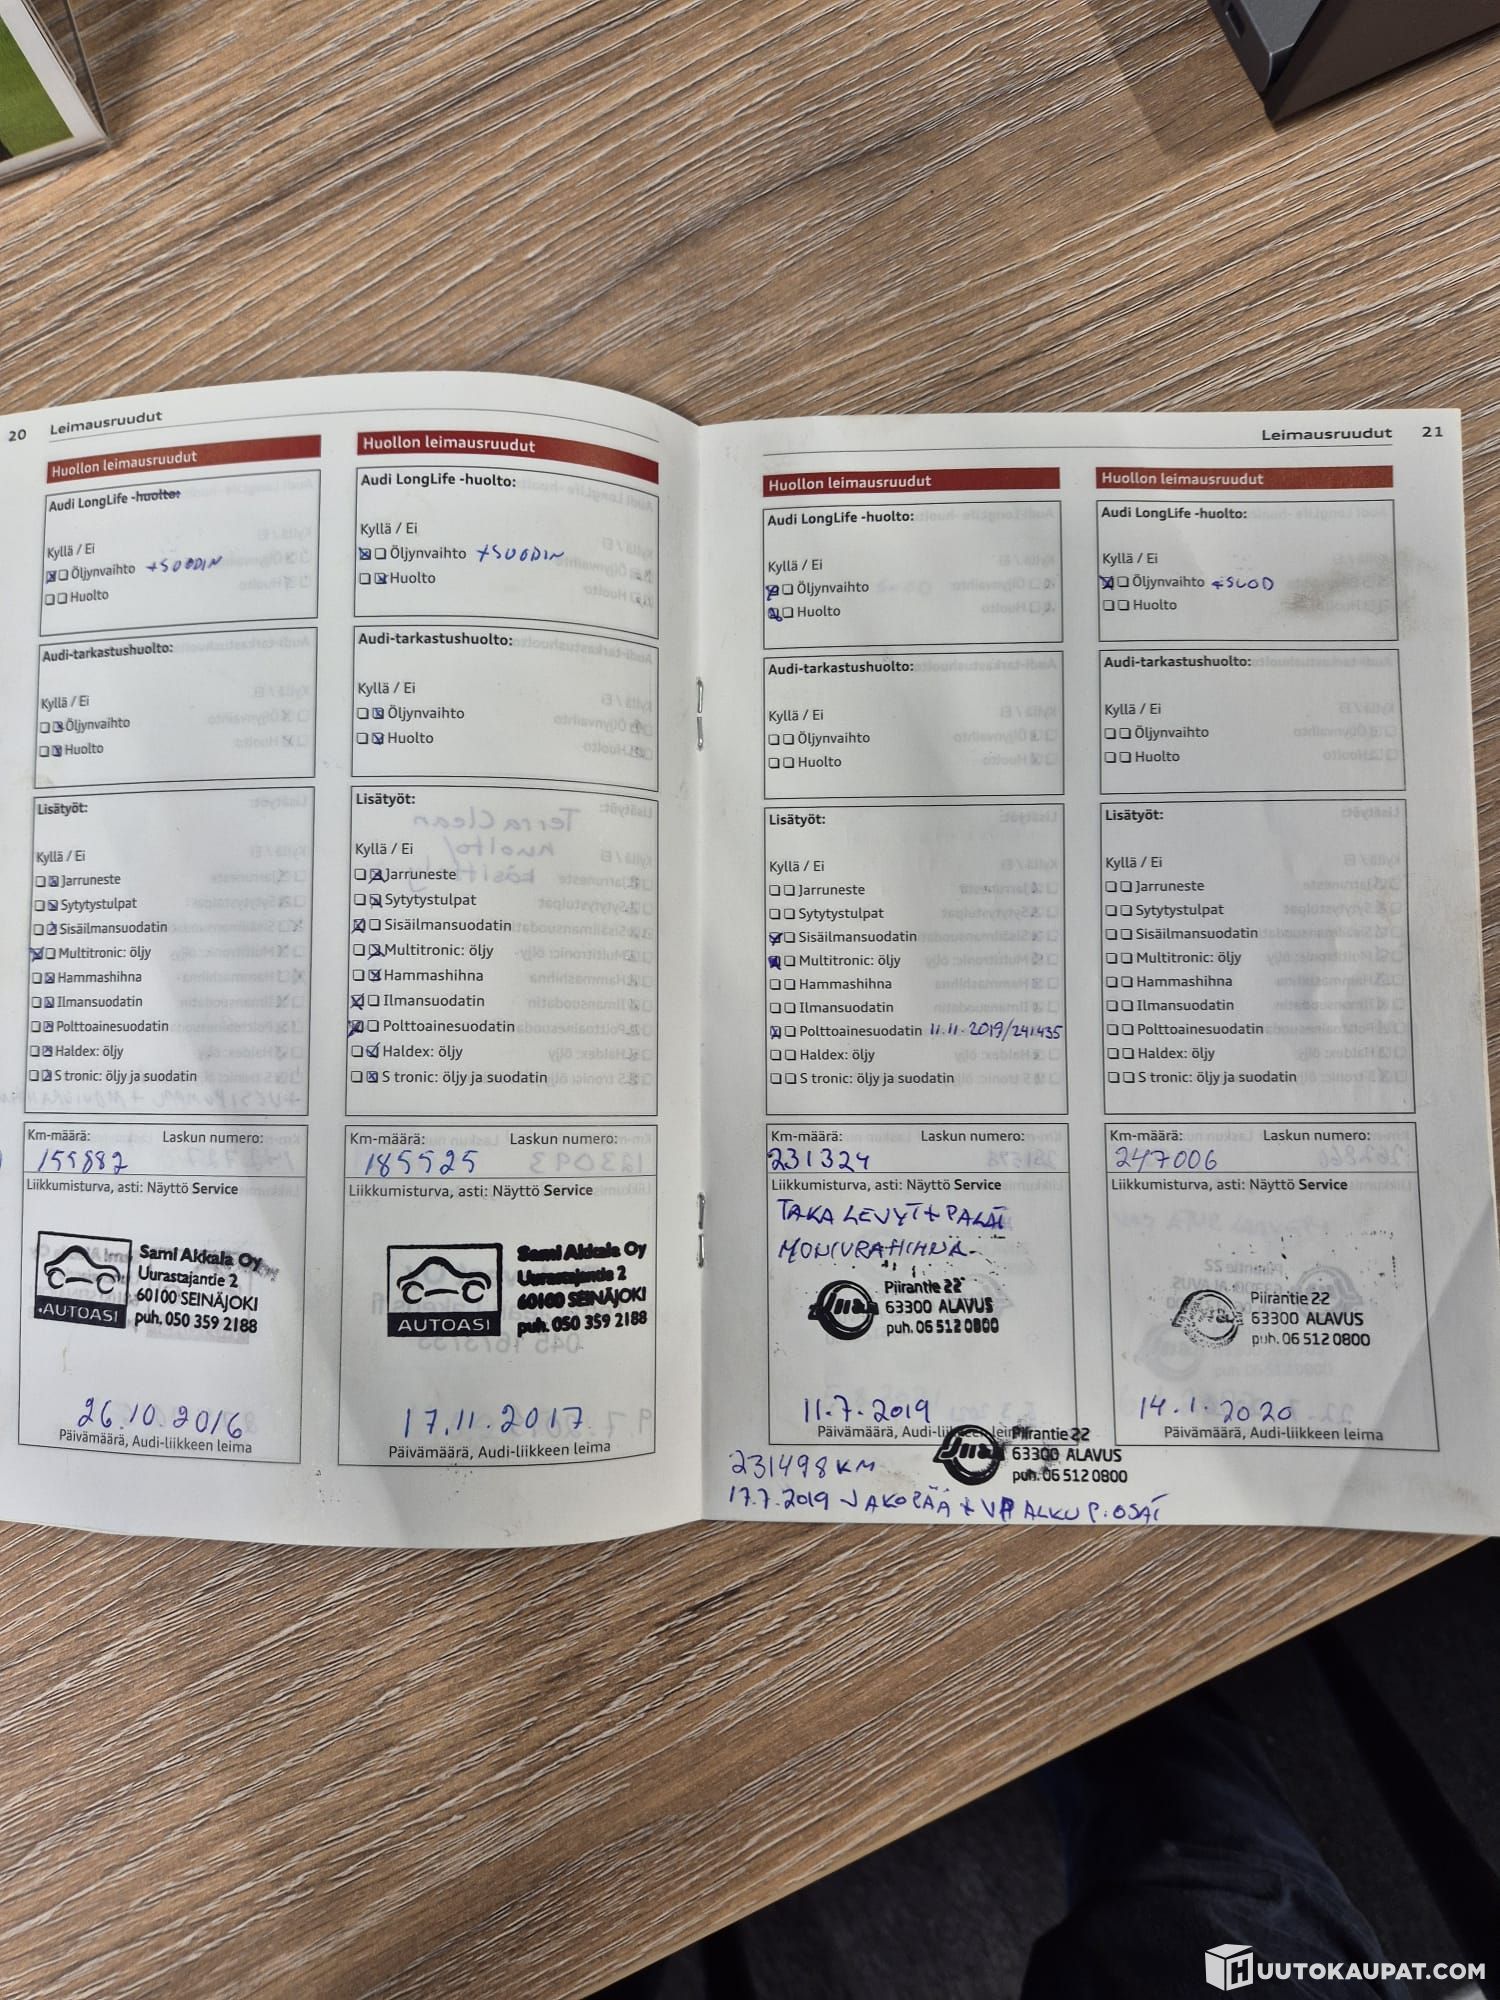 20 Leimausruudut
Huollon leimausruudut
Audi LongLife -huolto:
Kyllä / Ei
Öljynvaihto +SUODIN
Huolto
Audi-tarkastushuolto:
Kyllä / Ei
Öljynvaihto
Huolto
Lisätyöt:
Kyllä / Ei
Jarruneste
Sytytystulpat
Sisäilmansuodatin
Multitronic: öljy
Hammashihna
Ilmansuodatin
Polttoainesuodatin
Haldex: öljy
S tronic: öljy ja suodatin
Km-määrä: Laskun numero:
155882
Liikkumisturva, asti: Näyttö Service
Sami Akkala Oy
Uurastajantie 2
60100 SEINÄJOKI
puh. 050 359 2188
AUTOASI
26.10.2016
Päivämäärä, Audi-liikkeen leima
Huollon leimausruudut
Audi LongLife -huolto:
Kyllä / Ei
Öljynvaihto +SUODIN
Huolto
Audi-tarkastushuolto:
Kyllä / Ei
Öljynvaihto
Huolto
Lisätyöt:
Kyllä / Ei
Jarruneste
Sytytystulpat
Sisäilmansuodatin
Multitronic: öljy
Hammashihna
Ilmansuodatin
Polttoainesuodatin
Haldex: öljy
S tronic: öljy ja suodatin
Km-määrä: Laskun numero:
185525
Liikkumisturva, asti: Näyttö Service
Sami Akkala Oy
Uurastajantie 2
60100 SEINÄJOKI
puh. 050 359 2188
AUTOASI
17.11.2017
Päivämäärä, Audi-liikkeen leima
Leimausruudut 21
Huollon leimausruudut
Audi LongLife -huolto:
Kyllä / Ei
Öljynvaihto
Huolto
Audi-tarkastushuolto:
Kyllä / Ei
Öljynvaihto
Huolto
Lisätyöt:
Kyllä / Ei
Jarruneste
Sytytystulpat
Sisäilmansuodatin
Multitronic: öljy
Hammashihna
Ilmansuodatin
Polttoainesuodatin 11.11.2019/241435
Haldex: öljy
S tronic: öljy ja suodatin
Km-määrä: Laskun numero:
231324
Liikkumisturva, asti: Näyttö Service
TAKA LEVYT + PALAT
MONIURAHIHNA
Piirantie 22
63300 ALAVUS
puh. 06 512 0800
11.7.2019
Päivämäärä, Audi-liikkeen leima
Huollon leimausruudut
Audi LongLife -huolto:
Kyllä / Ei
Öljynvaihto +SUOD
Huolto
Audi-tarkastushuolto:
Kyllä / Ei
Öljynvaihto
Huolto
Lisätyöt:
Kyllä / Ei
Jarruneste
Sytytystulpat
Sisäilmansuodatin
Multitronic: öljy
Hammashihna
Ilmansuodatin
Polttoainesuodatin
Haldex: öljy
S tronic: öljy ja suodatin
Km-määrä: Laskun numero:
247006
Liikkumisturva, asti: Näyttö Service
Piirantie 22
63300 ALAVUS
puh. 06 512 0800
14.1.2020
Päivämäärä, Audi-liikkeen leima
Piirantie 22
63300 ALAVUS
puh. 06 512 0800
231498 KM
17.7.2019 JAKOPÄÄ + VP ALKUP. OSAT
HUUTOKAUPAT.COM